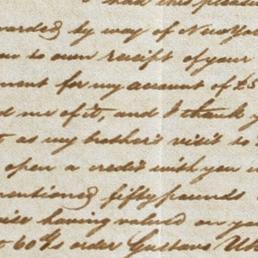 I had this pleasure
warded by way of New Yo
me to own receipt of your
ment for my account of £5
d me of it, and I thank y
t as my brother's visit to
open a credit with you in
mentioned fifty pounds
having valued on yo
60 d/s order Gustave